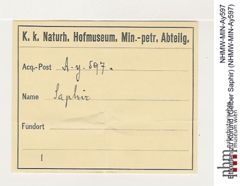 K. k. Naturh. Hofmuseum. Min.-petr. Abteilg.
Acq.-Post A.y.897.
Name Saphir
Fundort
NHMW-MIN-Ay597
Saphir) (NHMW-MIN-Ay597)
nhm